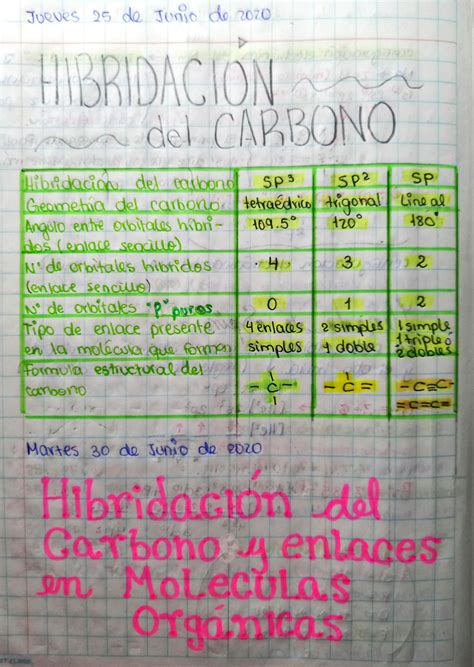 Jueves 25 de Junio de 2020
HIBRIDACION
del CARBONO
Hibridación del carbono SP³ SP² SP
Geometría del carbono tetraédrico trigonal Lineal
Angulo entre orbitales hibri- 109.5° 120° 180°
dos (enlace sencillo)
N° de orbitales hibridos 4 3 2
(enlace sencillo)
N° de orbitales "P" puros 0 1 2
Tipo de enlace presente 4 enlaces 2 simples 1 simple
en la molécula que forman simples 1 doble 1 triple o
2 dobles
Formula estructural del
carbono - C - - C = - C≡C-
=C=C=
Martes 30 de Junio de 2020
Hibridación del
Carbono y enlaces
en Moleculas
Orgánicas